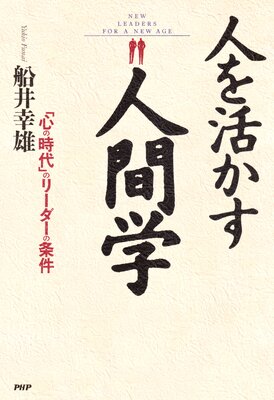 NEW
LEADERS
FOR A NEW AGE
人を活かす
人間学
「心の時代」のリーダーの条件
Yukio Funai
船井幸雄
PHP